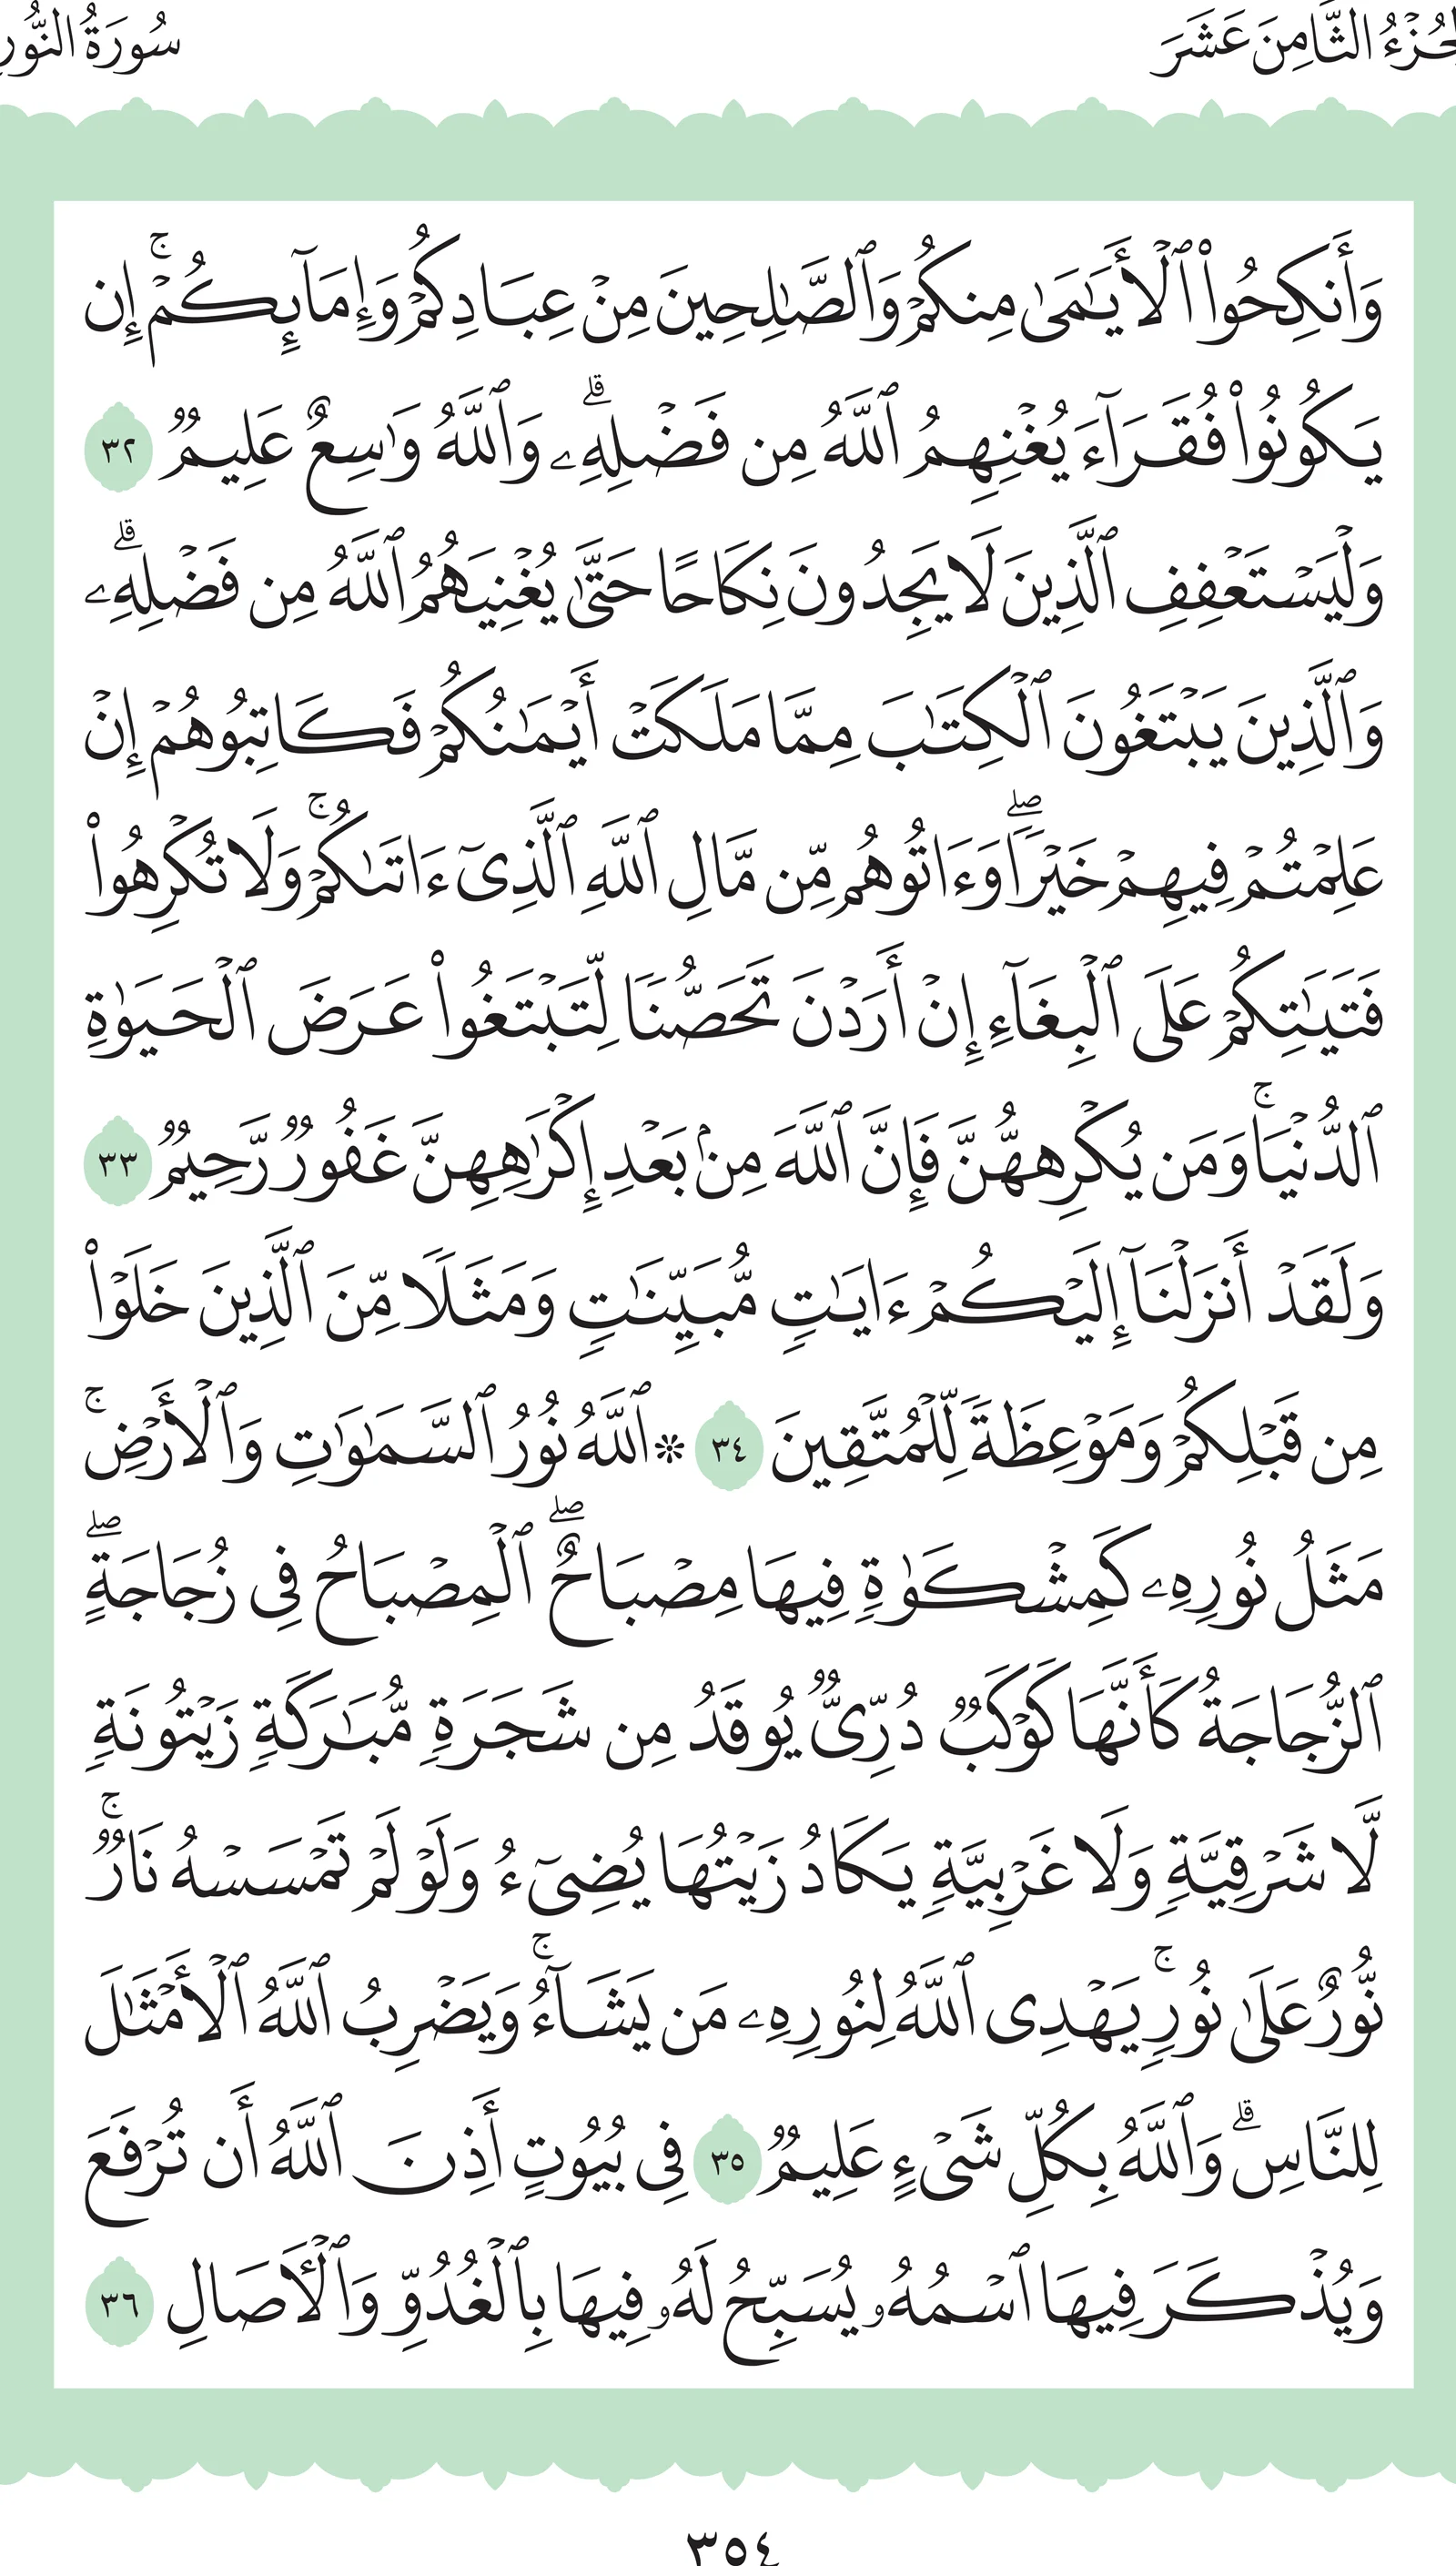 الجُزْءُ الثَّامِنَ عَشَرَ
سُورَةُ النُّورِ
وَأَنكِحُوا۟ ٱلْأَيَـٰمَىٰ مِنكُمْ وَٱلصَّـٰلِحِينَ مِنْ عِبَادِكُمْ وَإِمَآئِكُمْ ۚ إِن
يَكُونُوا۟ فُقَرَآءَ يُغْنِهِمُ ٱللَّهُ مِن فَضْلِهِۦ ۗ وَٱللَّهُ وَٰسِعٌ عَلِيمٌ ٣٢
وَلْيَسْتَعْفِفِ ٱلَّذِينَ لَا يَجِدُونَ نِكَاحًا حَتَّىٰ يُغْنِيَهُمُ ٱللَّهُ مِن فَضْلِهِۦ ۗ
وَٱلَّذِينَ يَبْتَغُونَ ٱلْكِتَـٰبَ مِمَّا مَلَكَتْ أَيْمَـٰنُكُمْ فَكَاتِبُوهُمْ إِنْ
عَلِمْتُمْ فِيهِمْ خَيْرًا ۖ وَءَاتُوهُم مِّن مَّالِ ٱللَّهِ ٱلَّذِىٓ ءَاتَىٰكُمْ ۚ وَلَا تُكْرِهُوا۟
فَتَيَـٰتِكُمْ عَلَى ٱلْبِغَآءِ إِنْ أَرَدْنَ تَحَصُّنًا لِّتَبْتَغُوا۟ عَرَضَ ٱلْحَيَوٰةِ
ٱلدُّنْيَا ۚ وَمَن يُكْرِههُّنَّ فَإِنَّ ٱللَّهَ مِنۢ بَعْدِ إِكْرَٰهِهِنَّ غَفُورٌ رَّحِيمٌ ٣٣
وَلَقَدْ أَنزَلْنَآ إِلَيْكُمْ ءَايَـٰتٍ مُّبَيِّنَـٰتٍ وَمَثَلًا مِّنَ ٱلَّذِينَ خَلَوْا۟
مِن قَبْلِكُمْ وَمَوْعِظَةً لِّلْمُتَّقِينَ ٣٤ ۞ ٱللَّهُ نُورُ ٱلسَّمَـٰوَٰتِ وَٱلْأَرْضِ ۚ
مَثَلُ نُورِهِۦ كَمِشْكَوٰةٍ فِيهَا مِصْبَاحٌ ۖ ٱلْمِصْبَاحُ فِى زُجَاجَةٍ ۖ
ٱلزُّجَاجَةُ كَأَنَّهَا كَوْكَبٌ دُرِّىٌّ يُوقَدُ مِن شَجَرَةٍ مُّبَـٰرَكَةٍ زَيْتُونَةٍ
لَّا شَرْقِيَّةٍ وَلَا غَرْبِيَّةٍ يَكَادُ زَيْتُهَا يُضِىٓءُ وَلَوْ لَمْ تَمْسَسْهُ نَارٌ ۚ
نُّورٌ عَلَىٰ نُورٍ ۗ يَهْدِى ٱللَّهُ لِنُورِهِۦ مَن يَشَآءُ ۚ وَيَضْرِبُ ٱللَّهُ ٱلْأَمْثَـٰلَ
لِلنَّاسِ ۗ وَٱللَّهُ بِكُلِّ شَىْءٍ عَلِيمٌ ٣٥ فِى بُيُوتٍ أَذِنَ ٱللَّهُ أَن تُرْفَعَ
وَيُذْكَرَ فِيهَا ٱسْمُهُۥ يُسَبِّحُ لَهُۥ فِيهَا بِٱلْغُدُوِّ وَٱلْـَٔاصَالِ ٣٦
٣٥٤